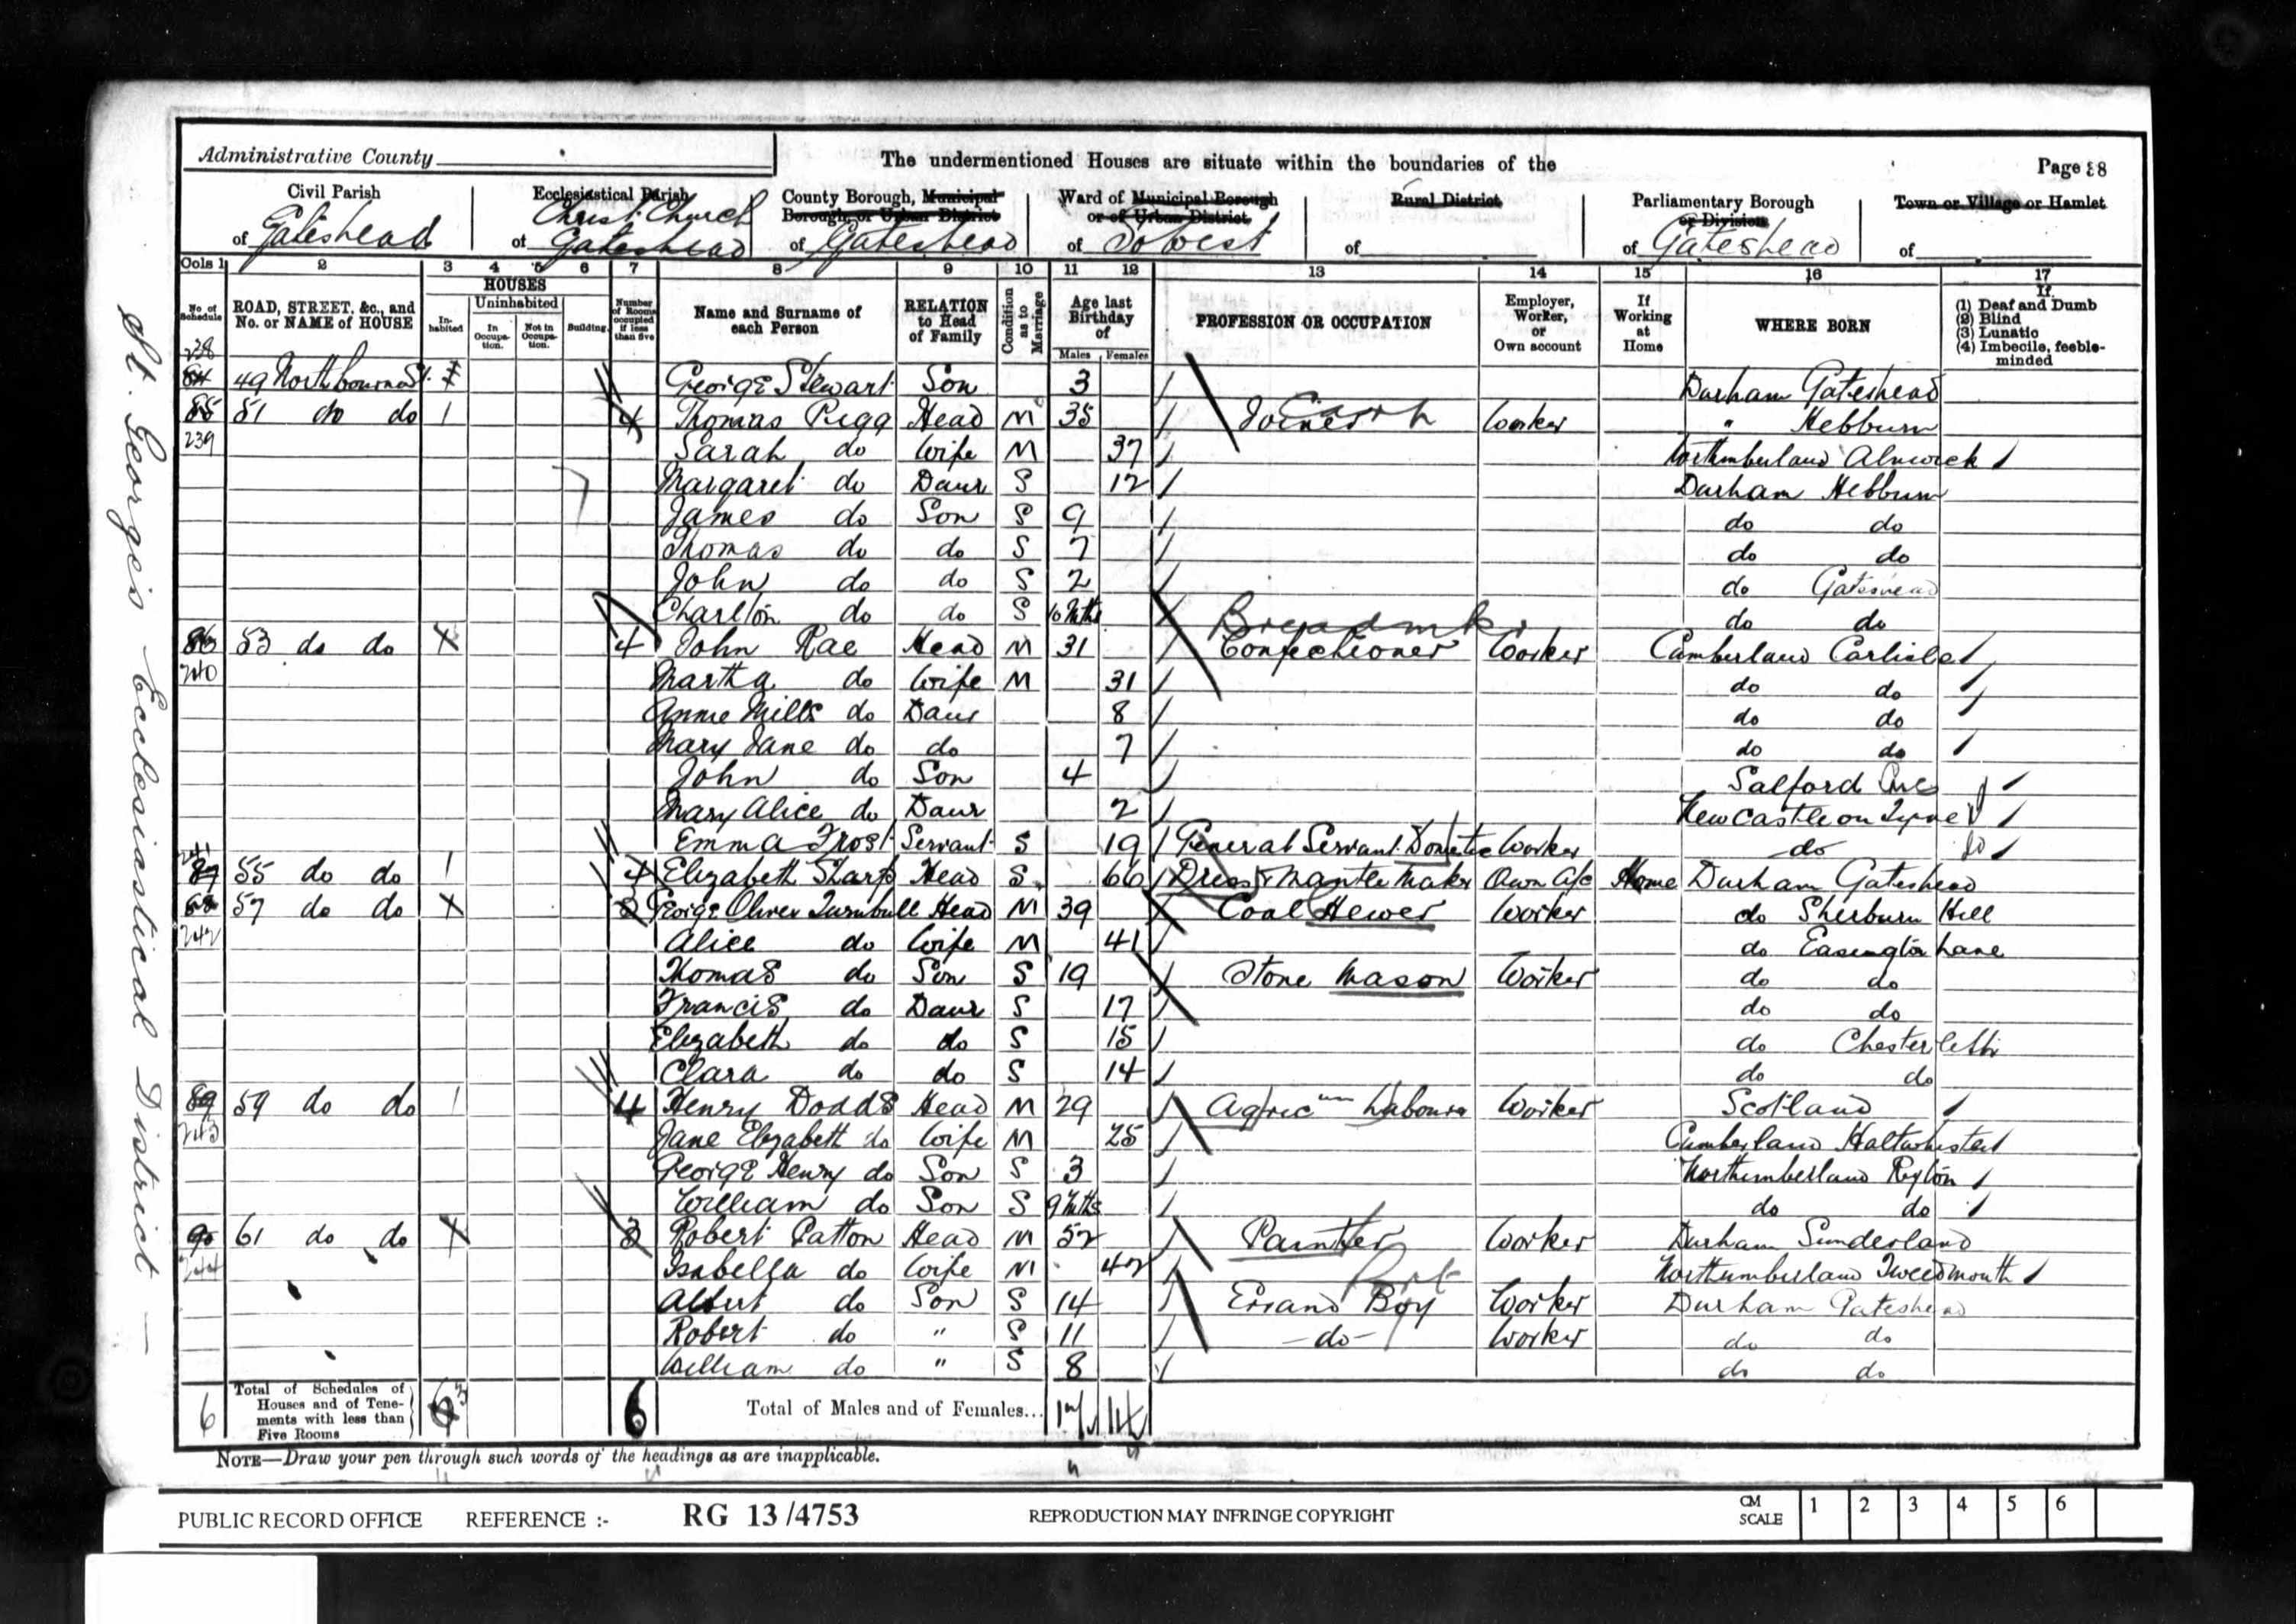 Administrative County
The undermentioned Houses are situate within the boundaries of the
Page 38
Civil Parish
of Gateshead
Ecclesiastical Parish
Christ Church
of Gateshead
County Borough, Municipal
Borough, or Urban District
of Gateshead
Ward of Municipal Borough
or of Urban District
of So West
Rural District
of
Parliamentary Borough
or Division
of Gateshead
Town or Village or Hamlet
of
Cols 1 2 3 4 5 6 7 8 9 10 11 12 13 14 15 16 17
No of Schedule
ROAD, STREET, &c., and No. or NAME of HOUSE
HOUSES
In-habited
Uninhabited
In Occupa-tion.
Not in Occupa-tion.
Building.
Number of Rooms occupied if less than five
Name and Surname of each Person
RELATION to Head of Family
Condition as to Marriage
Age last Birthday of
Males Females
PROFESSION OR OCCUPATION
Employer, Worker, or Own account
If Working at Home
WHERE BORN
If
(1) Deaf and Dumb
(2) Blind
(3) Lunatic
(4) Imbecile, feeble-minded
238
84 49 Northbourne St. George Stewart Son 3 Durham Gateshead
85 51 do do 1 4 Thomas Pigg Head M 35 Joiner Worker " Hebburn
239 Sarah do Wife M 37 Northumberland Alnwick
Margaret do Daur S 12 Durham Hebburn
James do Son S 9 do do
Thomas do do S 7 do do
John do do S 2 do Gateshead
Charlton do do S 10 Mths do do
Breadmkr
86 53 do do X 4 John Rae Head M 31 Confectioner Worker Cumberland Carlisle
240 Martha do Wife M 31 do do
Annie Mills do Daur 8 do do
Mary Jane do do 7 do do
John do Son 4 Salford
Mary Alice do Daur 2 Newcastle on Tyne
Emma Frost Servant S 19 General Servant Domestic Worker do
241
87 55 do do 1 4 Elizabeth Sharp Head S 66 Dress & Mantle Maker Own A/c Home Durham Gateshead
88 57 do do X 3 George Oliver Turnbull Head M 39 Coal Hewer Worker do Sherburn Hill
242 Alice do Wife M 41 do Easington Lane
Thomas do Son S 19 Stone Mason Worker do do
Francis do Daur S 17 do do
Elizabeth do do S 15 do Chester
Clara do do S 14 do do
89 59 do do 1 4 Henry Dodds Head M 29 Agric Labourer Worker Scotland
243 Jane Elizabeth do Wife M 25 Cumberland Haltwhistle
George Henry do Son S 3 Northumberland Ryton
William do Son S 9 Mths do do
90 61 do do X 3 Robert Patton Head M 52 Painter Worker Durham Sunderland
244 Isabella do Wife M 42 Northumberland Tweedmouth
Albert do Son S 14 Errand Boy Worker Durham Gateshead
Robert do " S 11 -do- Worker do do
William do " S 8 do do
6 Total of Schedules of Houses and of Tene-ments with less than Five Rooms 6 Total of Males and of Females... 17 14
NOTE—Draw your pen through such words of the headings as are inapplicable.
St. George's Ecclesiastical District —
PUBLIC RECORD OFFICE REFERENCE :- RG 13/4753 REPRODUCTION MAY INFRINGE COPYRIGHT CM SCALE 1 2 3 4 5 6